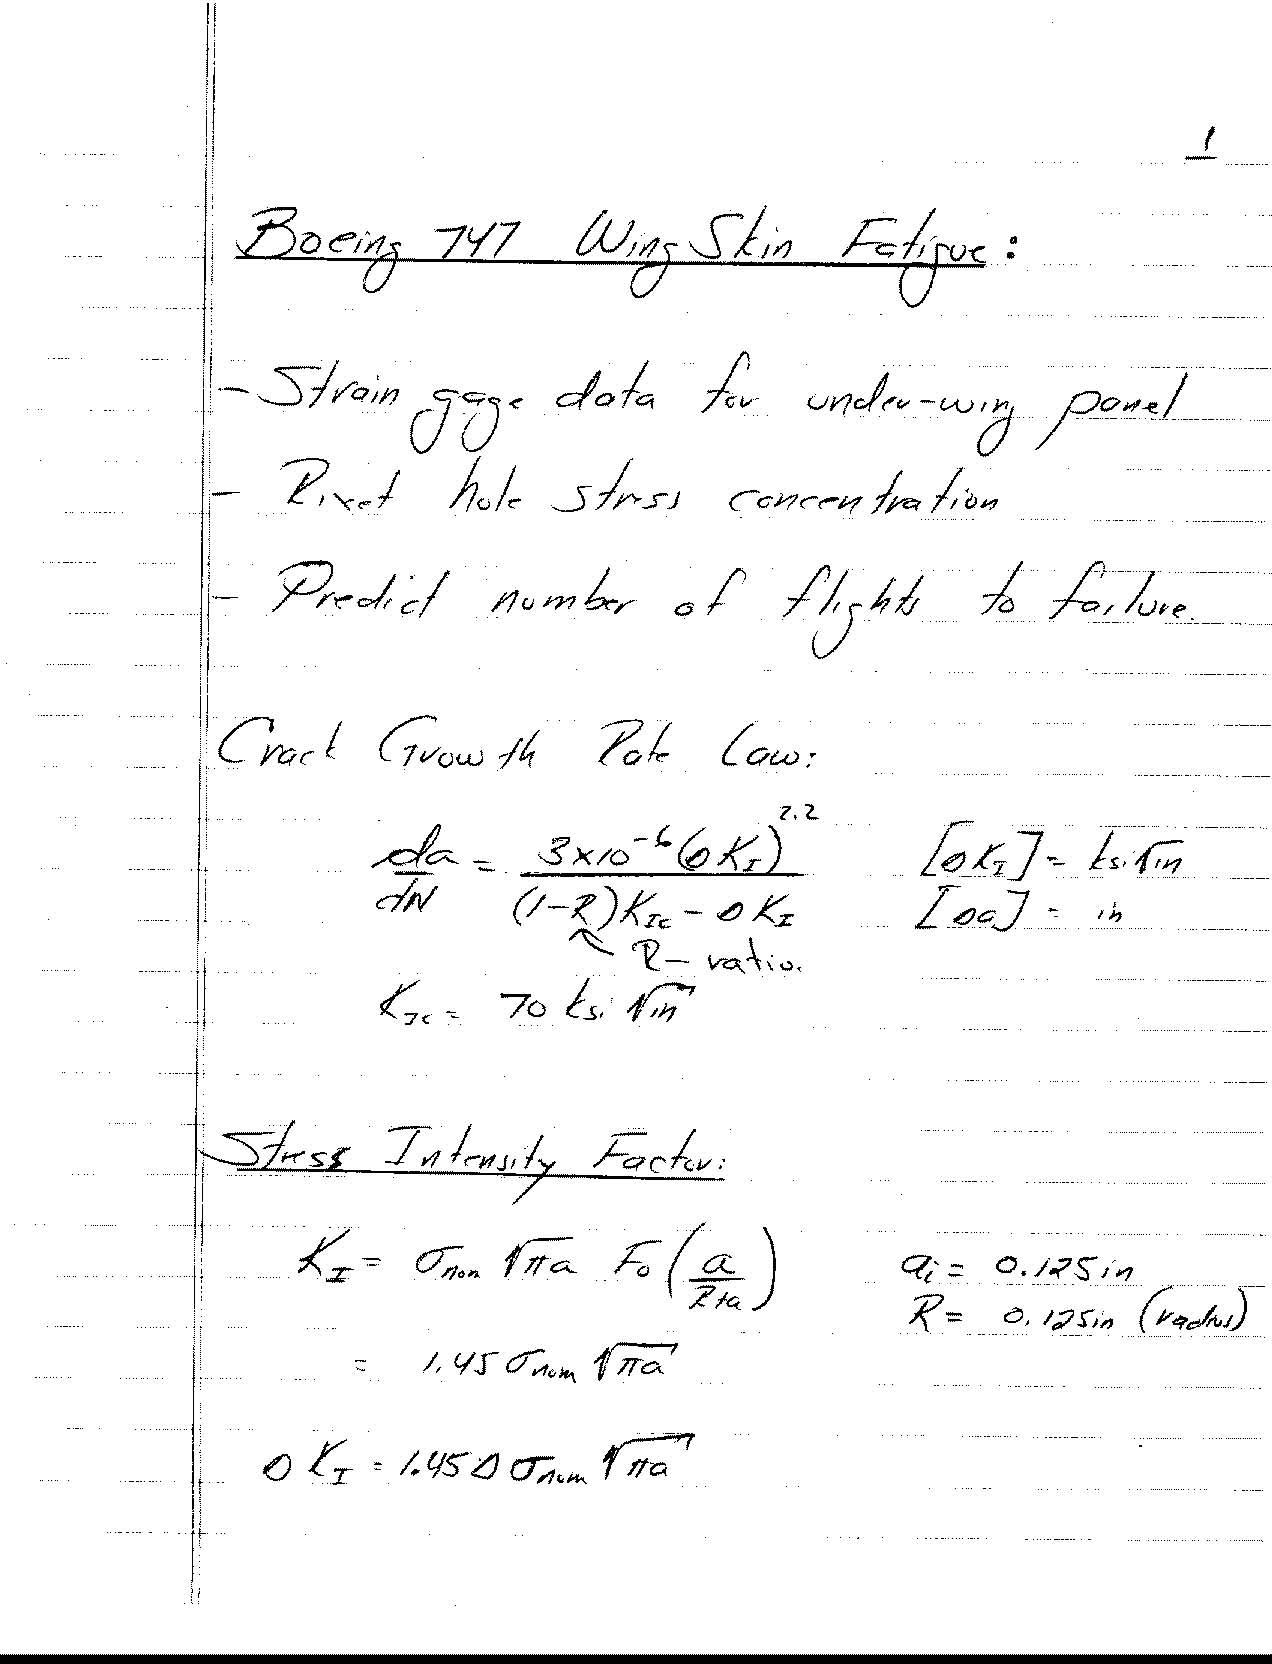 1
Boeing 747 Wing Skin Fatigue:
- Strain gage data for under-wing panel
- Rivet hole stress concentration
- Predict number of flights to failure.
Crack Growth Rate Law:
da/dN = 3x10^-6 (ΔK_I)^2.2 / ((1-R)K_Ic - ΔK_I) [ΔK_I] = ksi√in
[Δa] = in
R-ratio.
K_Ic = 70 ksi √in
Stress Intensity Factor:
K_I = σ_nom √πa F_0 (a/(R+a)) a_i = 0.125in
R = 0.125in (radius)
= 1.45 σ_nom √πa
ΔK_I = 1.45 Δσ_nom √πa